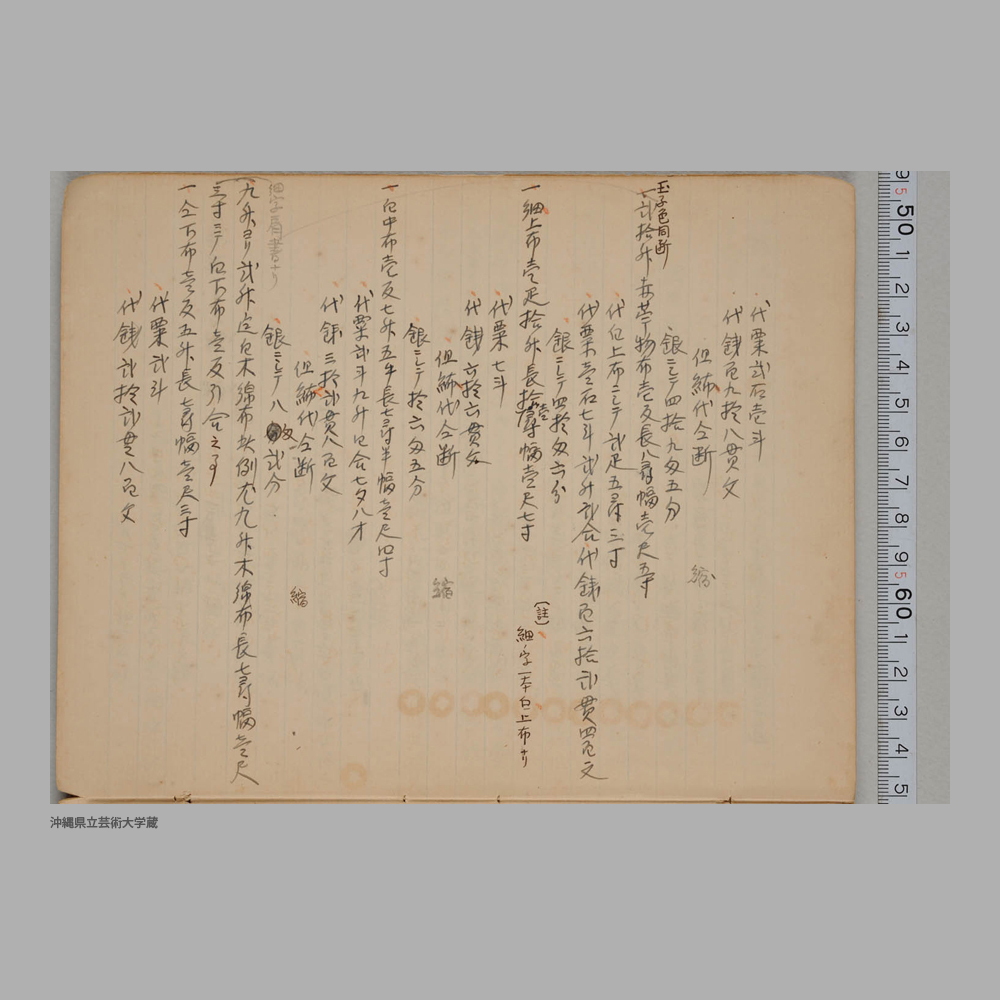 代粟弐石壱斗
代銭百九拾八貫文
但縮代仝断
縮
銀ニシテ四拾九匁五分
玉子色同断
一弐拾舛赤苧物布壱反長八尋幅壱尺五寸
代白上布ニシテ弐疋五尋三寸
代粟壱石七斗弐舛弐合代銭百六拾弐貫四百文
銀ニシテ四拾匁六分
〔註〕
細字一本白上布ナリ
一細上布壱疋拾舛長拾壱尋幅壱尺七寸
代粟七斗
代銭六拾六貫文
但縮代仝断
縮
銀ニシテ拾六匁五分
一白中布壱反七舛五牛長七尋半幅壱尺四寸
代粟弐斗九舛四合七夕八才
代銭三拾弐貫八百文
但縮代仝断
縮
銀ニシテ八匁弐分
細字肩書ナリ
九舛ヨリ弐舛定白木綿布故例尤九舛木綿布長七尋幅壱尺
三寸ニテ白下布壱反引合之事
一仝下布壱反五舛長七尋幅壱尺三寸
代粟弐斗
代銭弐拾弐貫八百文
9 5 50 1 2 3 4 5 6 7 8 9 5 60 1 2 3 4 5
沖縄県立芸術大学蔵